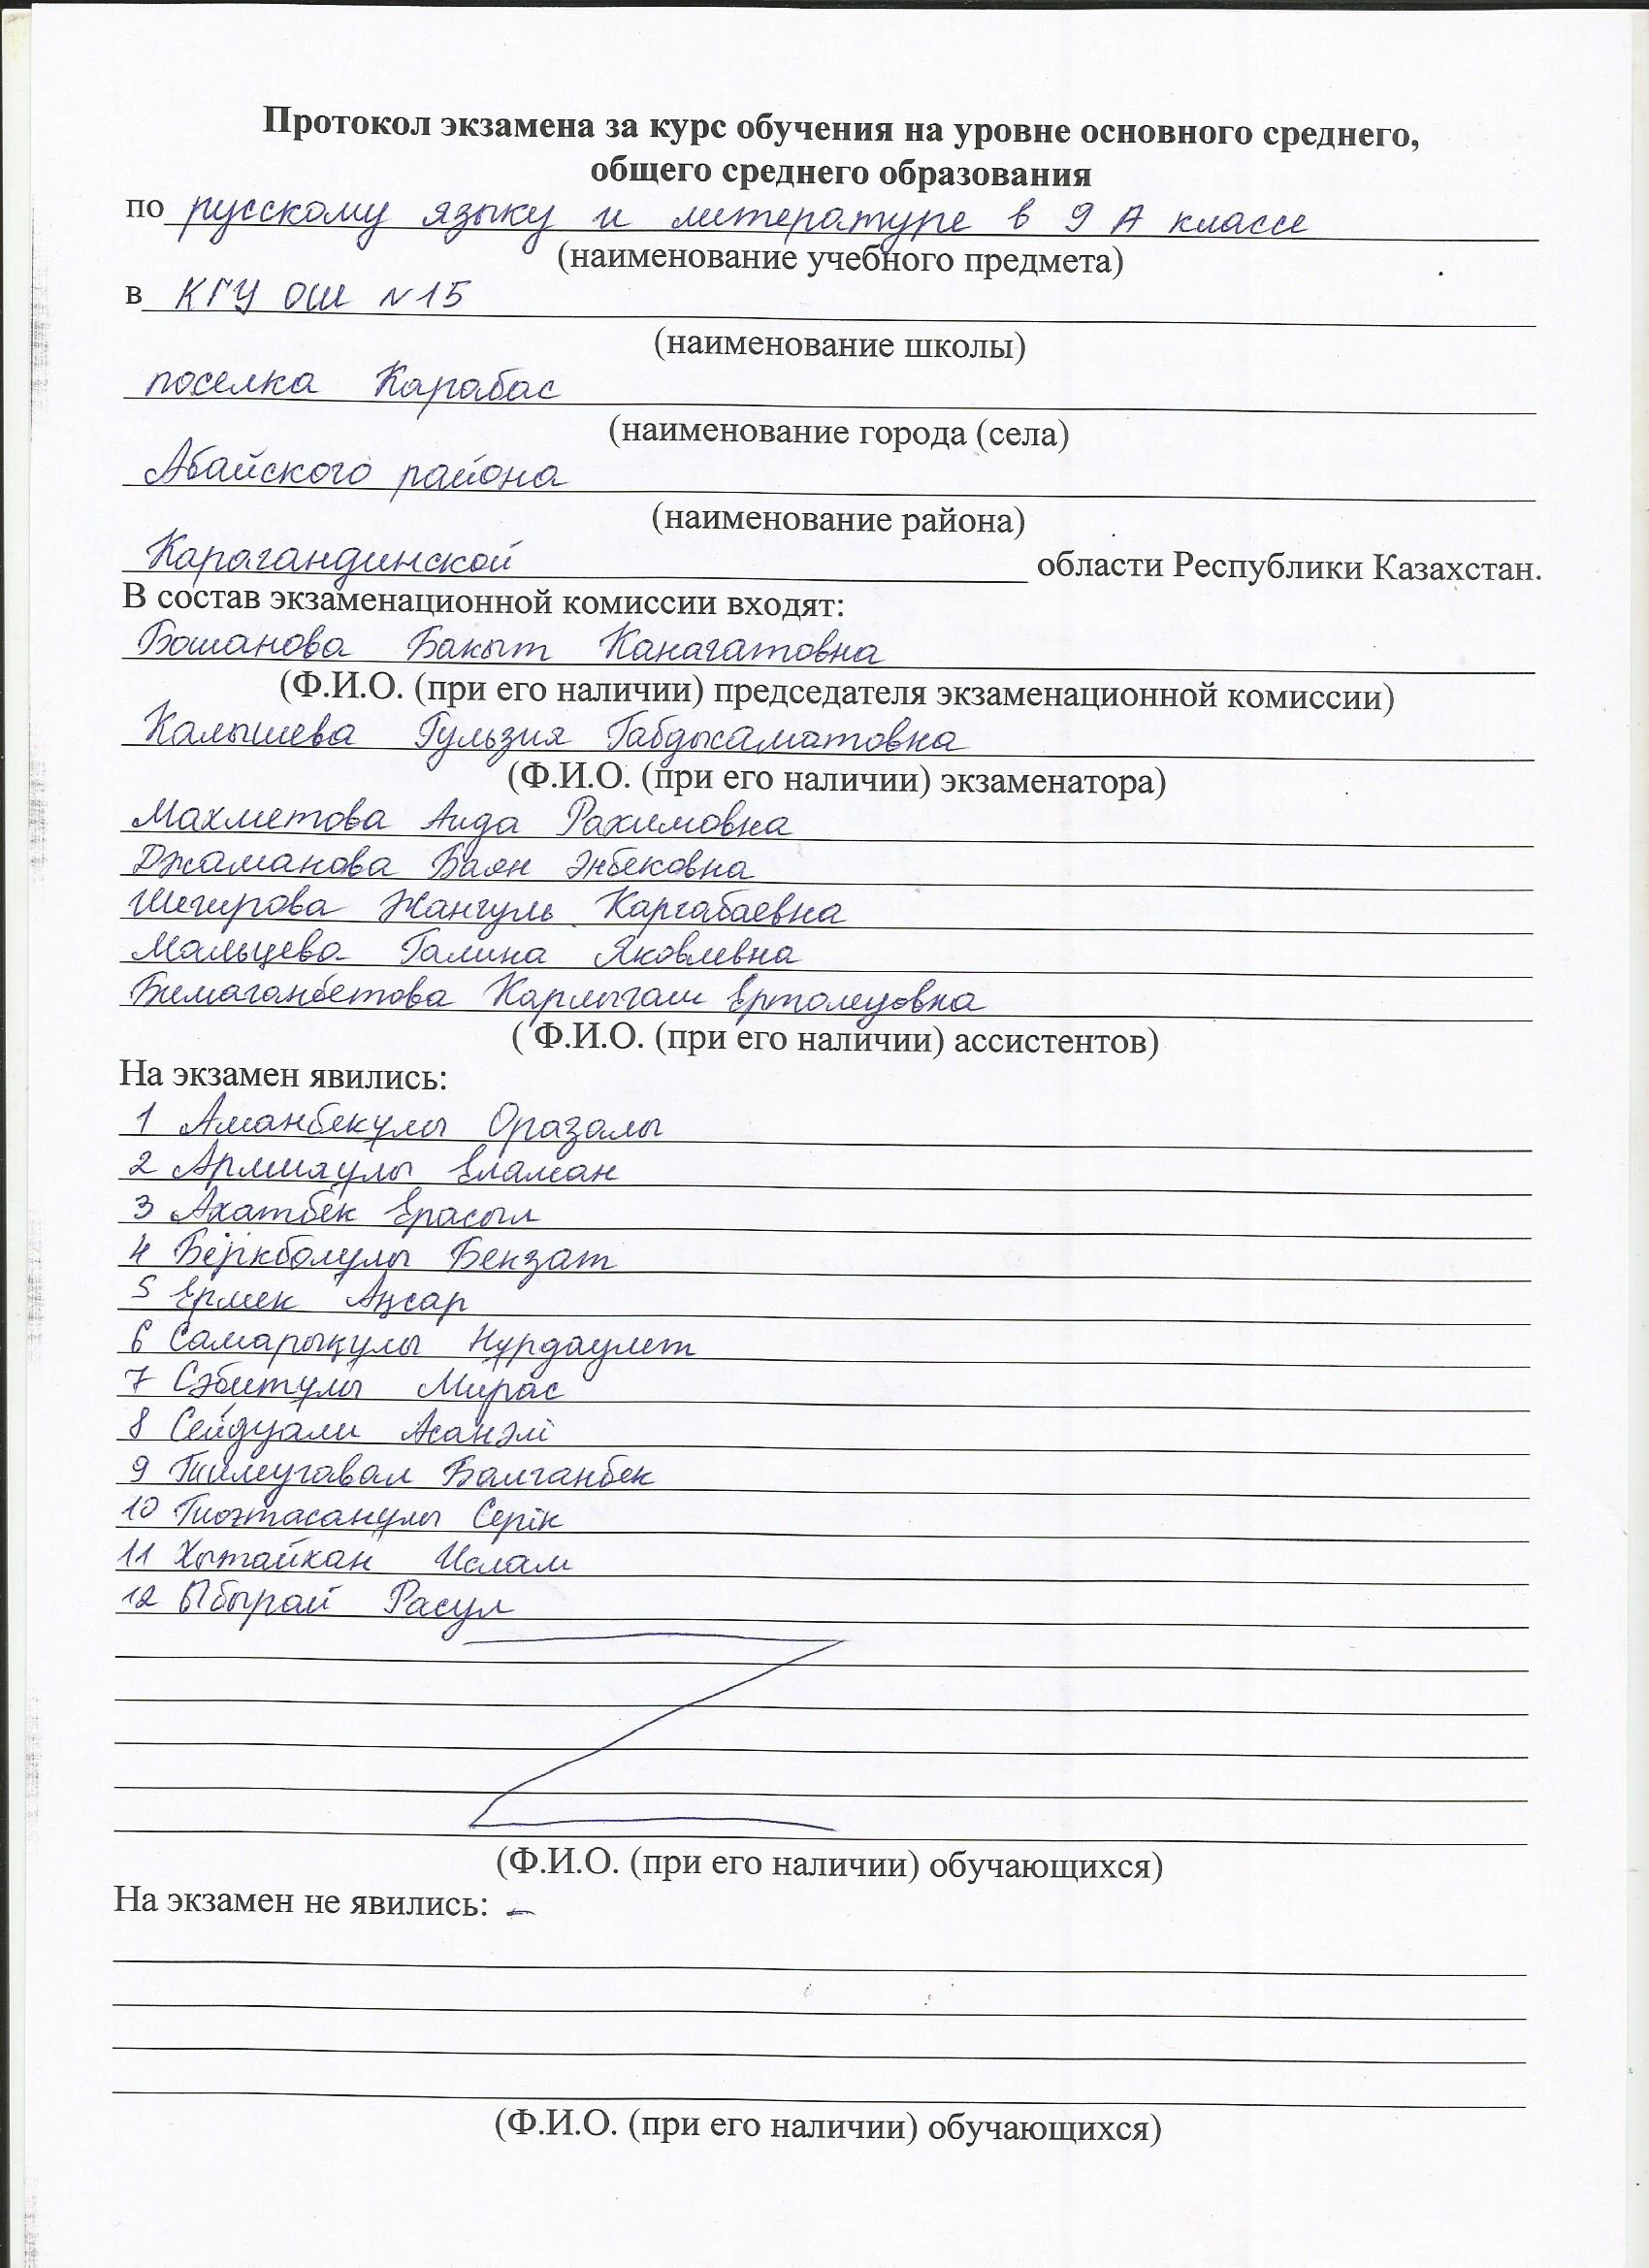 Протокол экзамена за курс обучения на уровне основного среднего,
общего среднего образования
по русскому языку и литературе в 9 А классе
(наименование учебного предмета)
в КГУ ОШ №15
(наименование школы)
поселка Карабас
(наименование города (села)
Абайского района
(наименование района)
Карагандинской области Республики Казахстан.
В состав экзаменационной комиссии входят:
Бошанова Бакыт Канагатовна
(Ф.И.О. (при его наличии) председателя экзаменационной комиссии)
Калышева Гульзия Габдысаматовна
(Ф.И.О. (при его наличии) экзаменатора)
Махметова Аида Рахимовна
Джаманова Баян Энбековна
Шигирова Жангуль Каргабаевна
Мальцева Галина Яковлевна
Бимаганбетова Карлыгаш
( Ф.И.О. (при его наличии) ассистентов)
На экзамен явились:
1 Аманбекұлы Оразалы
2 Армияұлы Еламан
3 Ахатбек Ерасыл
4 Берікболұлы Бекзат
5 Ермек Аңсар
6 Самарықұлы Нұрдаулет
7 Сәбитұлы Мирас
8 Сейдуали Асанәлі
9 Балганбек
10 Серік
11 Хытайхан Ислам
12 Ыбырай Расул
(Ф.И.О. (при его наличии) обучающихся)
На экзамен не явились: -
(Ф.И.О. (при его наличии) обучающихся)